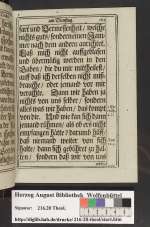 am Dienstag.
fart und Vermessenheit / welche
nichts guts / sondern einen Jam-
mer nach dem andern anrichtet.
Daß mich nicht aufgeblasen
und übermütig werden in den
Gaben / die du mir mittheilest /
auf daß ich derselben nicht miß-
brauche / oder jemand vor mir
verachte. Dann wir haben ja
nichts von uns selber / sondern
alles was wir haben / das kommt
von dir. Und wie kan sich dann
jemand rühmen / als ob ers nicht
empfangen hätte / darum
daß niemand weiter von sich
halte / dann sich gebühret zu hal-
ten / sondern daß wir von uns
Herzog August Bibliothek Wolfenbüttel
Signatur: 216.20 Theol.
http://diglib.hab.de/drucke/216-20-theol/start.htm